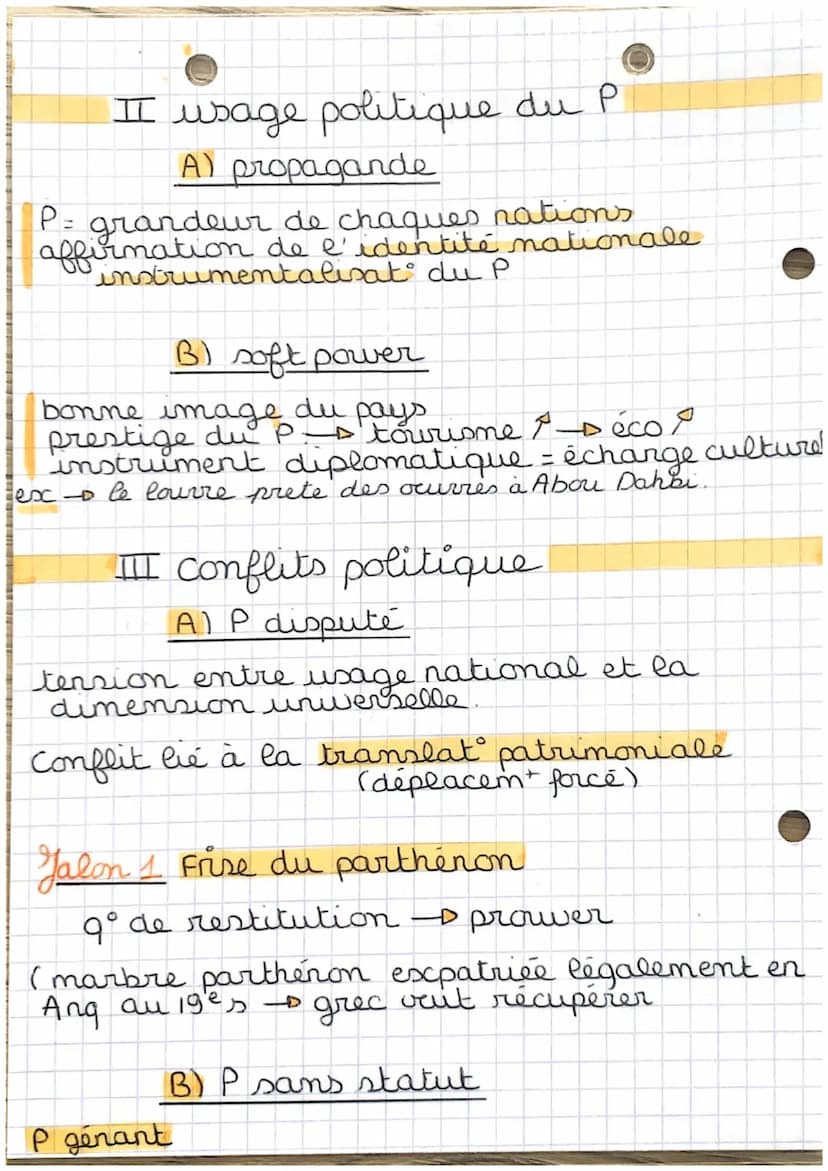 II usage politique du P
A) propagande
P = grandeur de chaques nations
affirmation de l'identité nationale
instrumentalisat° du P
B) soft power
bonne image du pays
prestige du P → tourisme ↗ → éco ↗
instrument diplomatique = échange culturel
ex → le louvre prete des oeuvres à Abou Dahbi.
III Conflits politique
A) P disputé
tension entre usage national et la
dimension universelle.
Conflit lié à la translat° patrimoniale
(déplacemt forcé)
Jalon 1 Frise du parthénon
q° de restitution → prouver
(marbre parthénon escpatriée légalement en
Ang au 19e s → grec veut récupérer
B) P sans statut
P gênant